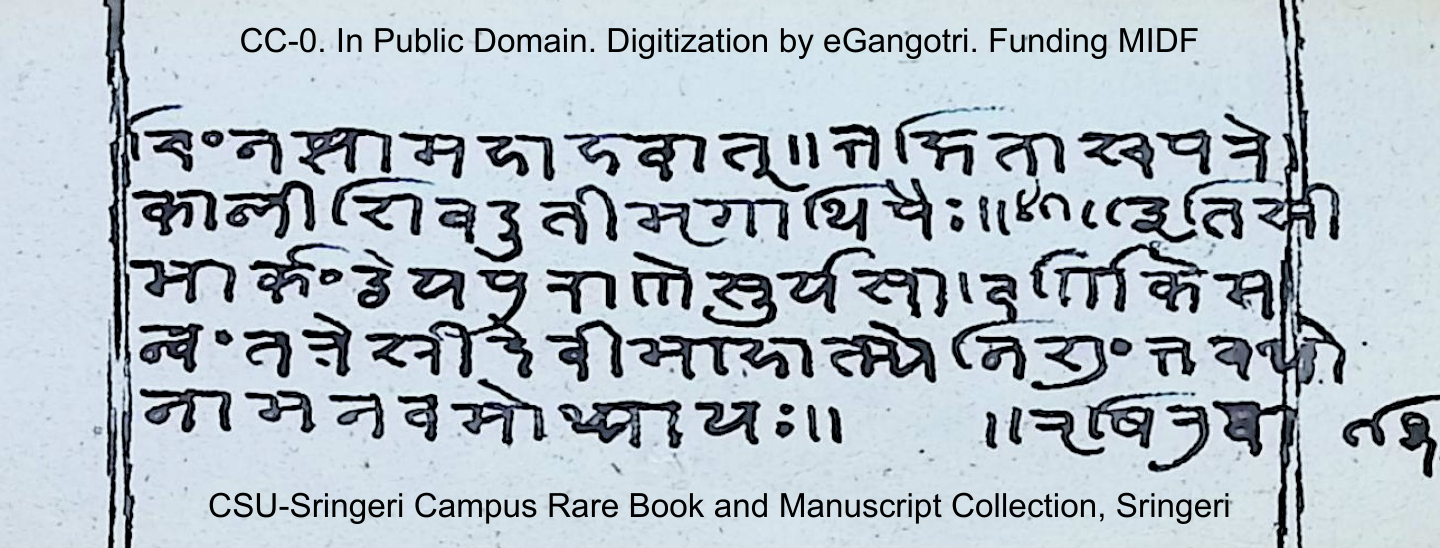 CC-0. In Public Domain. Digitization by eGangotri. Funding MIDF
विंनसामहाहवात्॥ त्तक्षितास्चपत्रे
काली शिवदुतीमृगाधिपैः॥४१॥इति स्री
मार्कंडेयपुराणे सुर्यसा।वर्णिकेम
न्वंतत्रेस्रीदेवीमाहात्म्ये निशुंत्तवधो
नामनवमोध्यायः॥ ॥ऋषिरुवा
CSU-Sringeri Campus Rare Book and Manuscript Collection, Sringeri